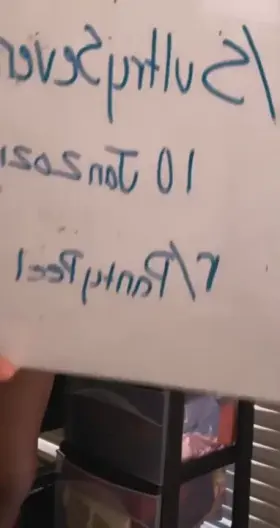 /SultrySeve
10 Jan 2021
r/PantyPeel